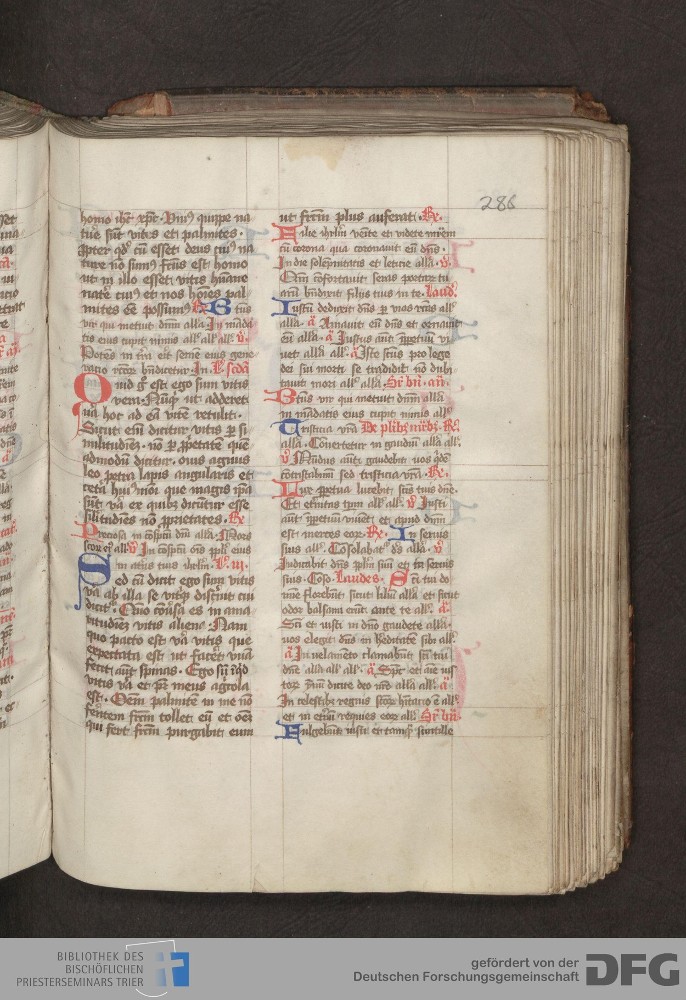 286
homo ihc xpc. Vnius quippe na
ture sunt vites et palmites.
Propter qd cu esset deus cuius na
ture no sumus fcus est homo
ut in illo esset vitis humane
natura cuius et nos hoies pal
mites ee possimus. R Btus
vir qui metuit dnm alla In manda
tis eius cupit nimis all all all. v.
Potes in tra eit semen eius gene
ratio rcor bndicetur. In L. scda
Quid g est ego sum vitis
vera. Nuq ut adderet
ua hoc ad ea vite retulit.
Sicut eni dicitur vitis p si
militudiez. no p prpetate que
admodu dicitur. ouis agnus
leo petra lapis angularis et
ceta huius moi que magis ipa
sut va ex quibz dicutur esse
similitudies no prprietates. R
Preciosa in cospcu dni alla. Mors
scor eius all. v In cospcu ois ppli eius
In atriis tuis ihrlm. L. iii.
Sed cu dicit ego sum vitis
va ab illa se vtiq discrnit cui
dicit. Quo couersa es in ama
ritudiem vitis aliena. Nam
quo pacto est va vitis que
expectata est ut facet vua
fecit aut spinas. Ego su inqd
vitis va et pr meus agricola
est. Oem palmite in me no
ferentem frcm tollet eu et oem
qui fert frcm purgabit eum
ut frcm plus auferat. R.
Filie ihrlm venite et videte mrem
cu corona qua coronauit eu dns.
In die solepnitatis et leticie alla. v.
Qm cofortauit seras portar tu
aru bndixit filiis tuis in te. Laud.
Iustu deduxit dns p vias rctas all
alla. a Amauit eu dns et ornauit
eu alla. a Iustus aut ippetuu vi
uet alla all. a Iste scus pro lege
dei sui morti se tradidit no dubi
tauit mori all alla. Sr bn. an.
Btus vir qui metuit dnm alla
in madatis eius cupit nimis all
Tristicia vra De plibz mrbz. R.
alla. Couertetur in gaudiu alla all.
v Mudus aut gaudebit vos qde
cotristabimi sed tristicia vra. R.
Lux ppetua lucebit scis tuis dne.
Et etnitas tpm all all. v Iusti
aut ippetuu viuent et apud dnm
est merces eor. R. In seruis
suis all. Cosolabat ds alla. v
Iudicabit dns pplm suu et in seruis
suis. Coso. Laudes. Sci tui do
mie florebut sicut liliu alla et sicut
odor balsami erut ante te all. a.
Sci et iusti in dno gaudete alla.
vos elegit dns in heditate sibi all.
a In velameto clamabut sci tui
dne alla all all. a Spc et aie ius
tor ymnu dicite deo nro alla alla. a.
In celestibz regnis scor hitatio e all
et in etnu requies eor all. Sr bn.
Fulgebut iusti et tamq scintille
BIBLIOTHEK DES
BISCHÖFLICHEN
PRIESTERSEMINARS TRIER
gefördert von der
Deutschen Forschungsgemeinschaft
DFG